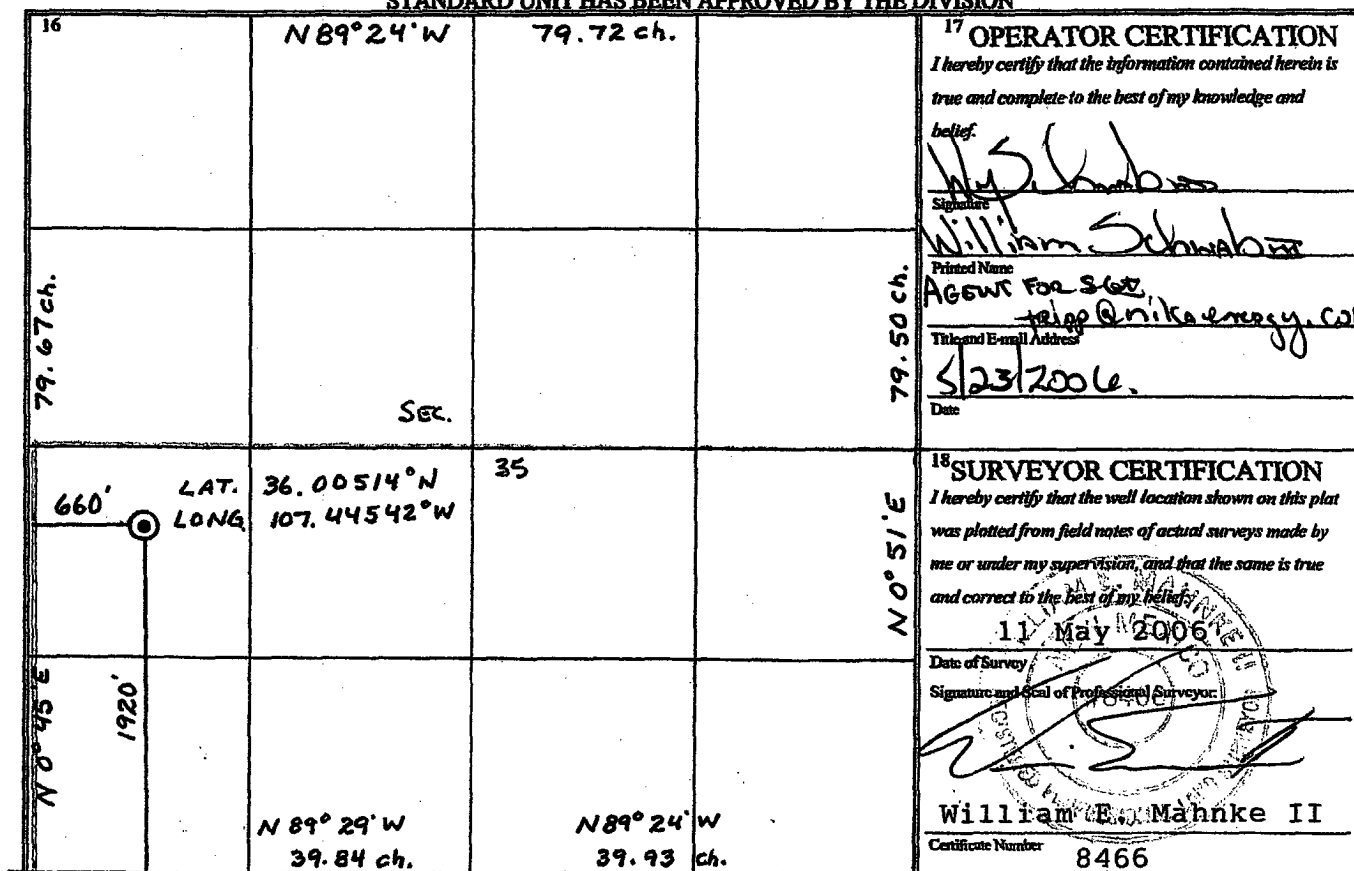 STANDARD UNIT HAS BEEN APPROVED BY THE DIVISION
16
N 89° 24' W 79.72 ch.
79.67 ch.
79.50 ch.
SEC.
35
660'
LAT. 36.00514° N
LONG 107.44542° W
N 0° 51' E
N 0° 45' E
1920'
N 89° 29' W
39.84 ch.
N 89° 24' W
39.93 ch.
17 OPERATOR CERTIFICATION
I hereby certify that the information contained herein is
true and complete to the best of my knowledge and
belief.
Signature
William Schwab III
Printed Name
AGENT FOR
@nikaenergy.co
Title and E-mail Address
5/23/2006.
Date
18 SURVEYOR CERTIFICATION
I hereby certify that the well location shown on this plat
was plotted from field notes of actual surveys made by
me or under my supervision, and that the same is true
and correct to the best of my belief.
11 May 2006
Date of Survey
Signature and Seal of Professional Surveyor:
William E. Mahnke II
Certificate Number
8466